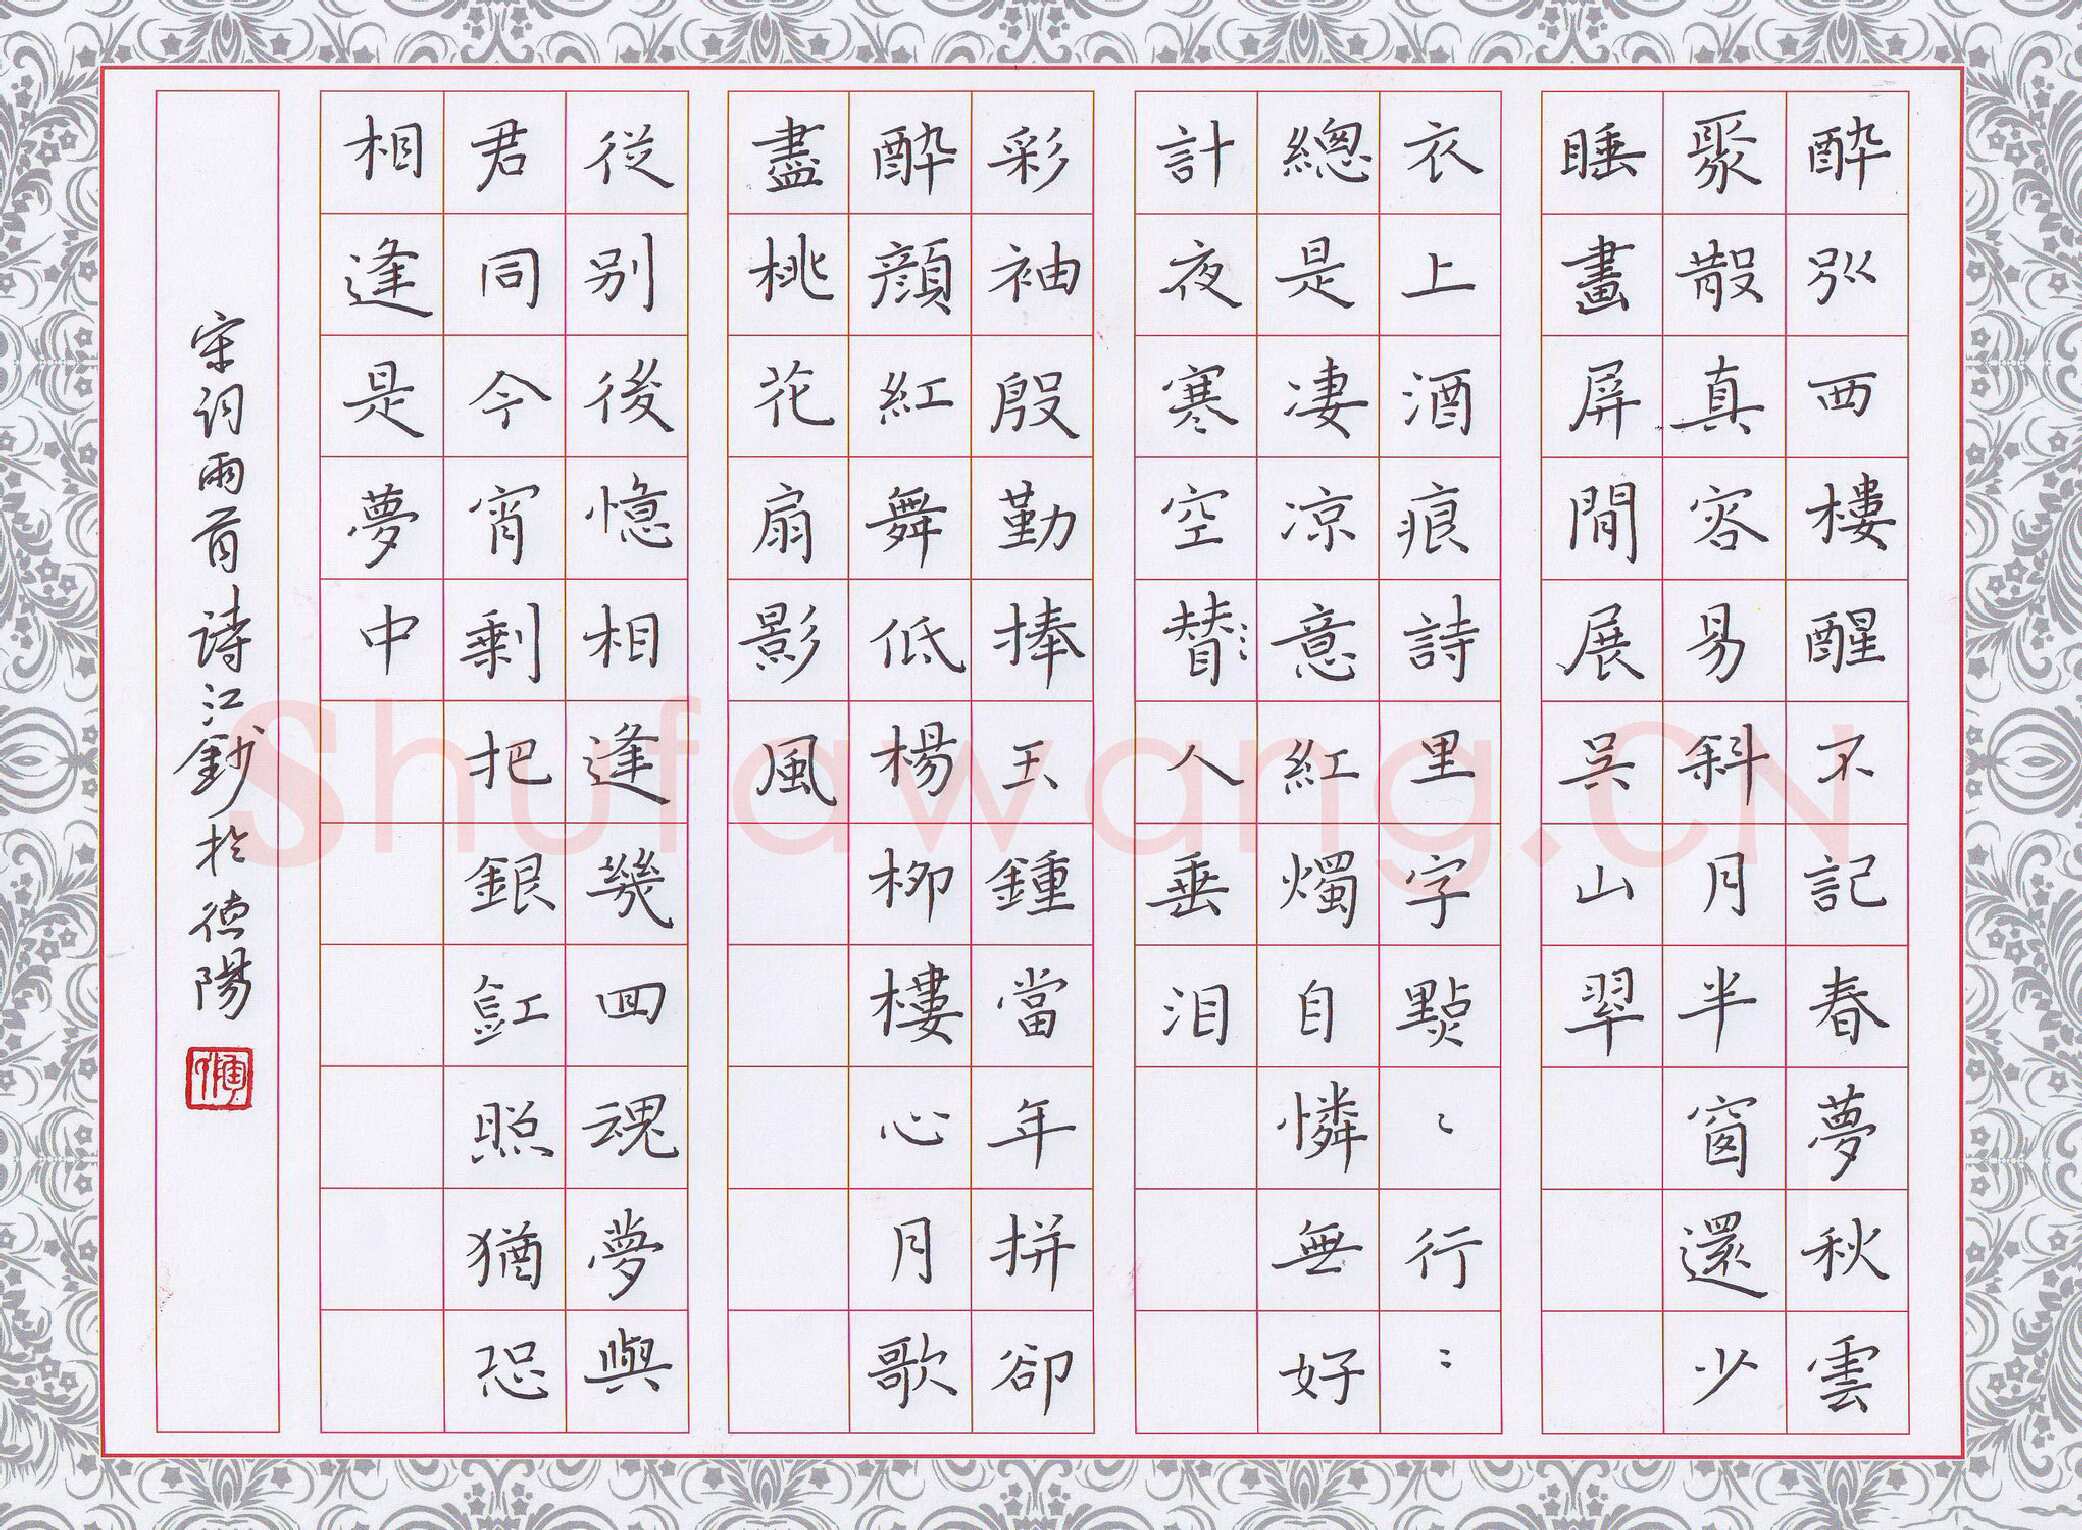 醉別西樓醒不記春夢秋雲
聚散真容易斜月半窗還少
睡畫屏閒展吳山翠
衣上酒痕詩里字點〻行〻
總是凄凉意紅燭自憐無好
計夜寒空替人垂泪
彩袖殷勤捧玉鍾當年拼卻
醉顏紅舞低楊柳樓心月歌
盡桃花扇影風
從别後憶相逢幾回魂夢與
君同今宵剩把銀釭照猶恐
相逢是夢中
宋詞兩首詩江鈔於德陽
Shufawang.CN